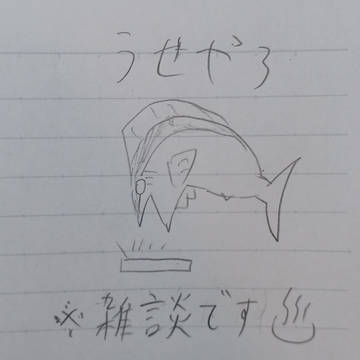 うせやろ
※雑談です♨